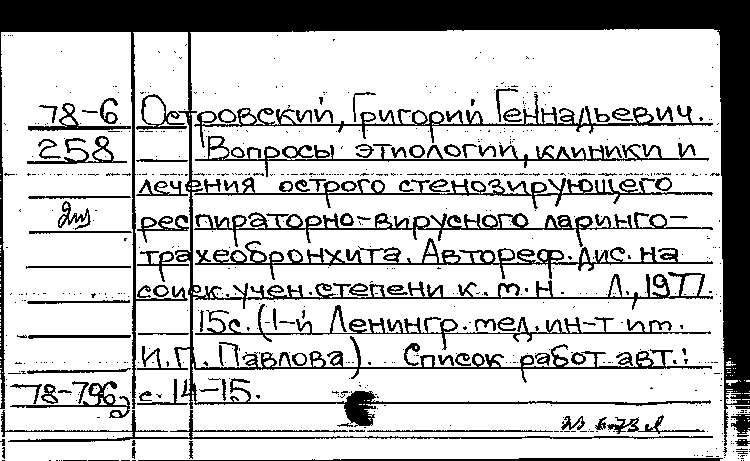 78-6 Островский, Григорий Геннадьевич.
258 Вопросы этиологии, клиники и
лечения острого стенозирующего
2нз респираторно-вирусного ларинго-
трахеобронхита. Автореф. дис. на
соиск. учен. степени к. м. н. Л., 1977.
15с. (1-й Ленингр. мед. ин-т им.
И. П. Павлова). Список работ авт.:
78-796 с. 14-15.